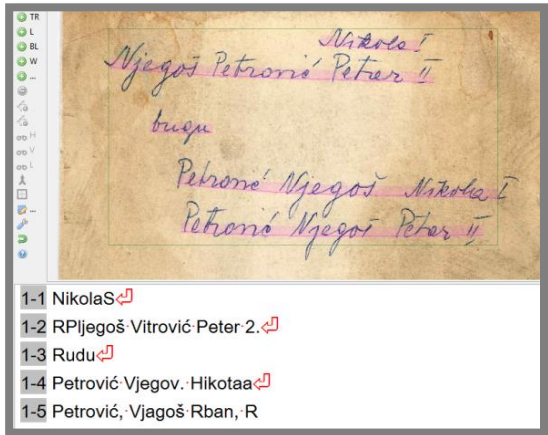 TR
L
BL
W
...
H
V
L
...
Nikola I
Njegoš Petrović Petar II
Petrović Njegoš Nikola I
Petrović Njegoš Petar II
1-1 NikolaS
1-2 RPljegoš Vitrović Peter 2.
1-3 Rudu
1-4 Petrović Vjegov. Hikotaa
1-5 Petrović, Vjagoš Rban, R